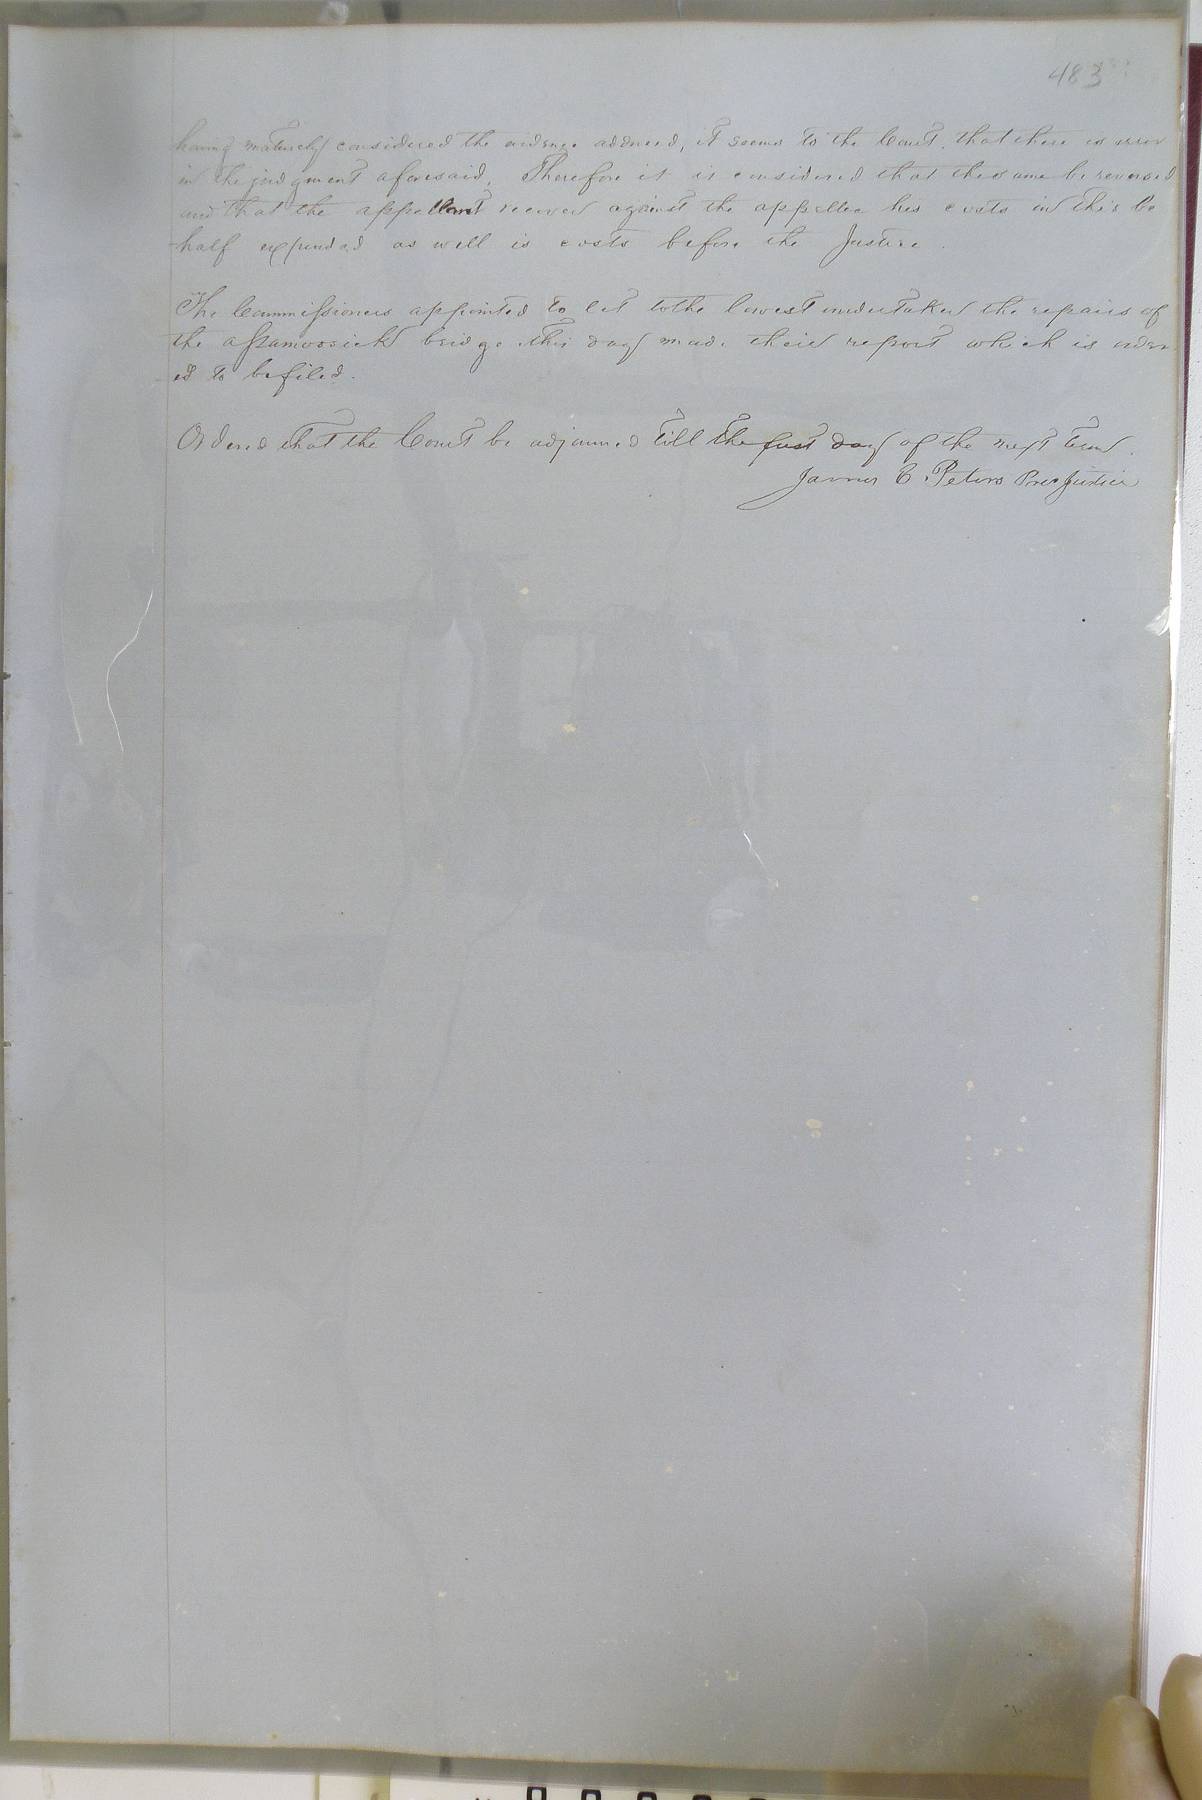 483
having maturely considered the evidence adduced, it seems to the Court, that there is error
in the judgment aforesaid, Therefore it is considered that the same be reversed
and that the appellant recover against the appellee his costs in this be
half expended as well is costs before the Justice.
The Commissioners appointed to let to the lowest undertaker the repairs of
the Assamoosick bridge this day made their report which is order
ed to be filed.
Ordered that the Court be adjourned till the first day of the next term.
James C. Peters Pres Justice